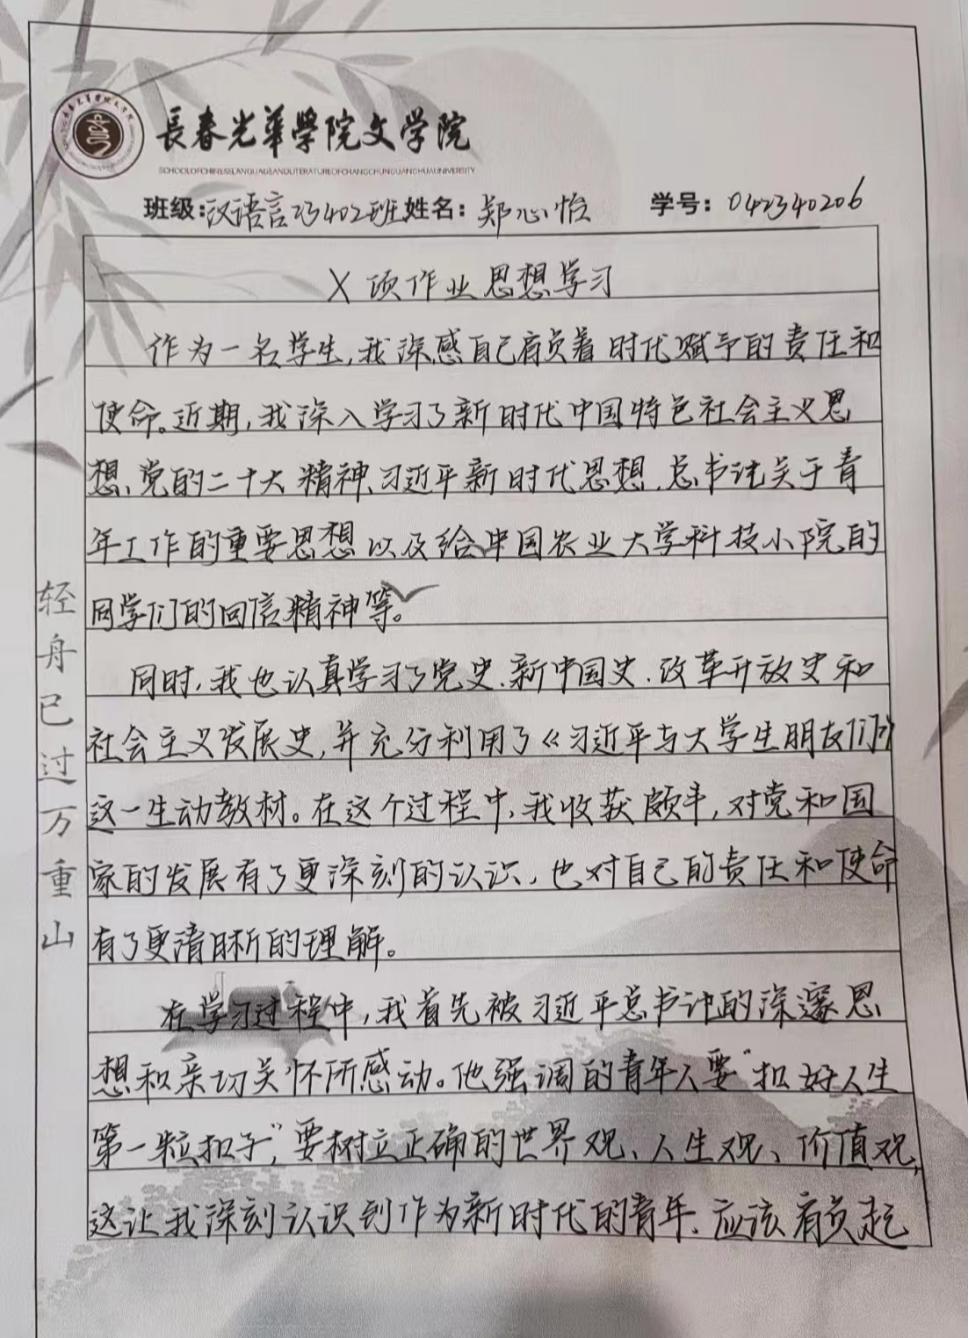 長春光華學院文学院
SCHOOLOFCHINESELANGUAGEANDLITERATUREOFCHANGCHUNGUANGHUAUNIVERSITY
班级:汉语言23402班姓名:郑心怡 学号:042340206
X项作业思想学习
作为一名学生,我深感自己肩负着时代赋予的责任和
使命。近期,我深入学习了新时代中国特色社会主义思
想、党的二十大精神、习近平新时代思想、总书记关于青
年工作的重要思想以及给中国农业大学科技小院的
同学们的回信精神等。
同时,我也认真学习了党史、新中国史、改革开放史和
社会主义发展史,并充分利用了《习近平与大学生朋友们》
这一生动教材。在这个过程中,我收获颇丰,对党和国
家的发展有了更深刻的认识,也对自己的责任和使命
有了更清晰的理解。
在学习过程中,我首先被习近平总书记的深邃思
想和亲切关怀所感动。他强调的青年人要“扣好人生
第一粒扣子”,要树立正确的世界观、人生观、价值观,
这让我深刻认识到作为新时代的青年、应该肩负起
轻舟已过万重山